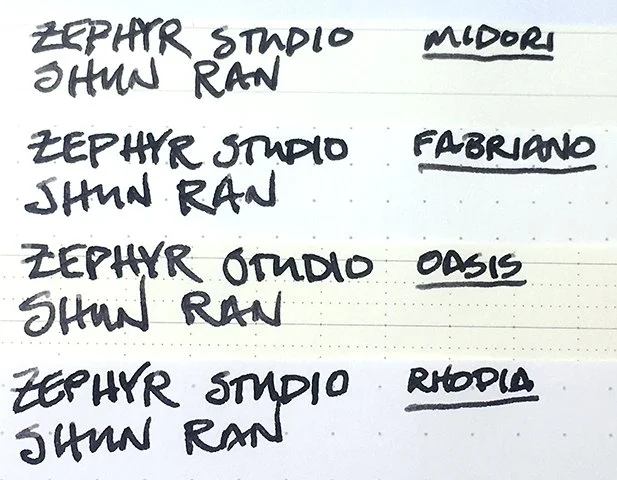 ZEPHYR STUDIO MIDORI
SHUN RAN
ZEPHYR STUDIO FABRIANO
SHUN RAN
ZEPHYR STUDIO OASIS
SHUN RAN
ZEPHYR STUDIO RHODIA
SHUN RAN